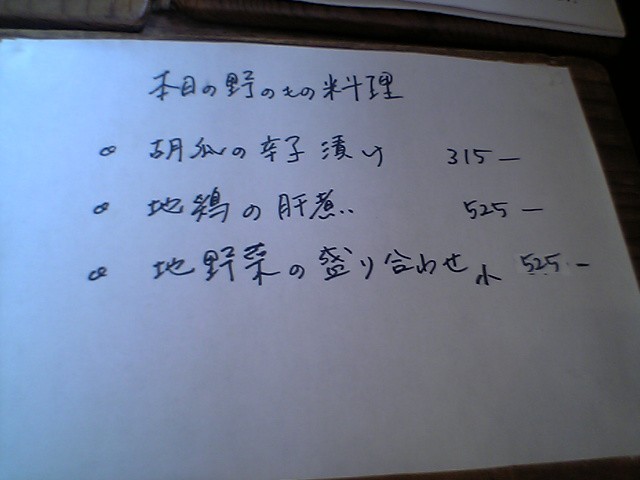 本日の野のもの料理
胡瓜の辛子漬け 315ー
地鶏の肝煮 525ー
地野菜の盛り合わせ 小 525ー